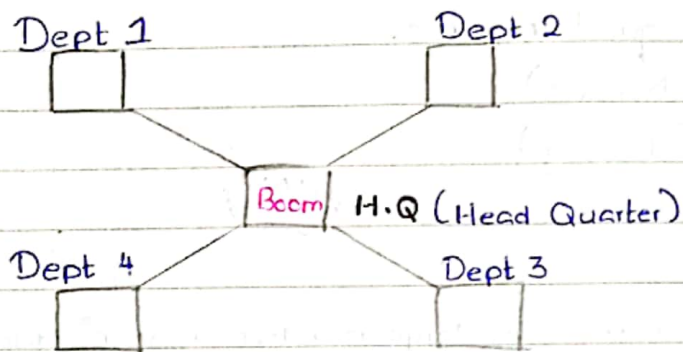 Dept 1
Dept 2
Boom H.Q (Head Quarter)
Dept 4
Dept 3